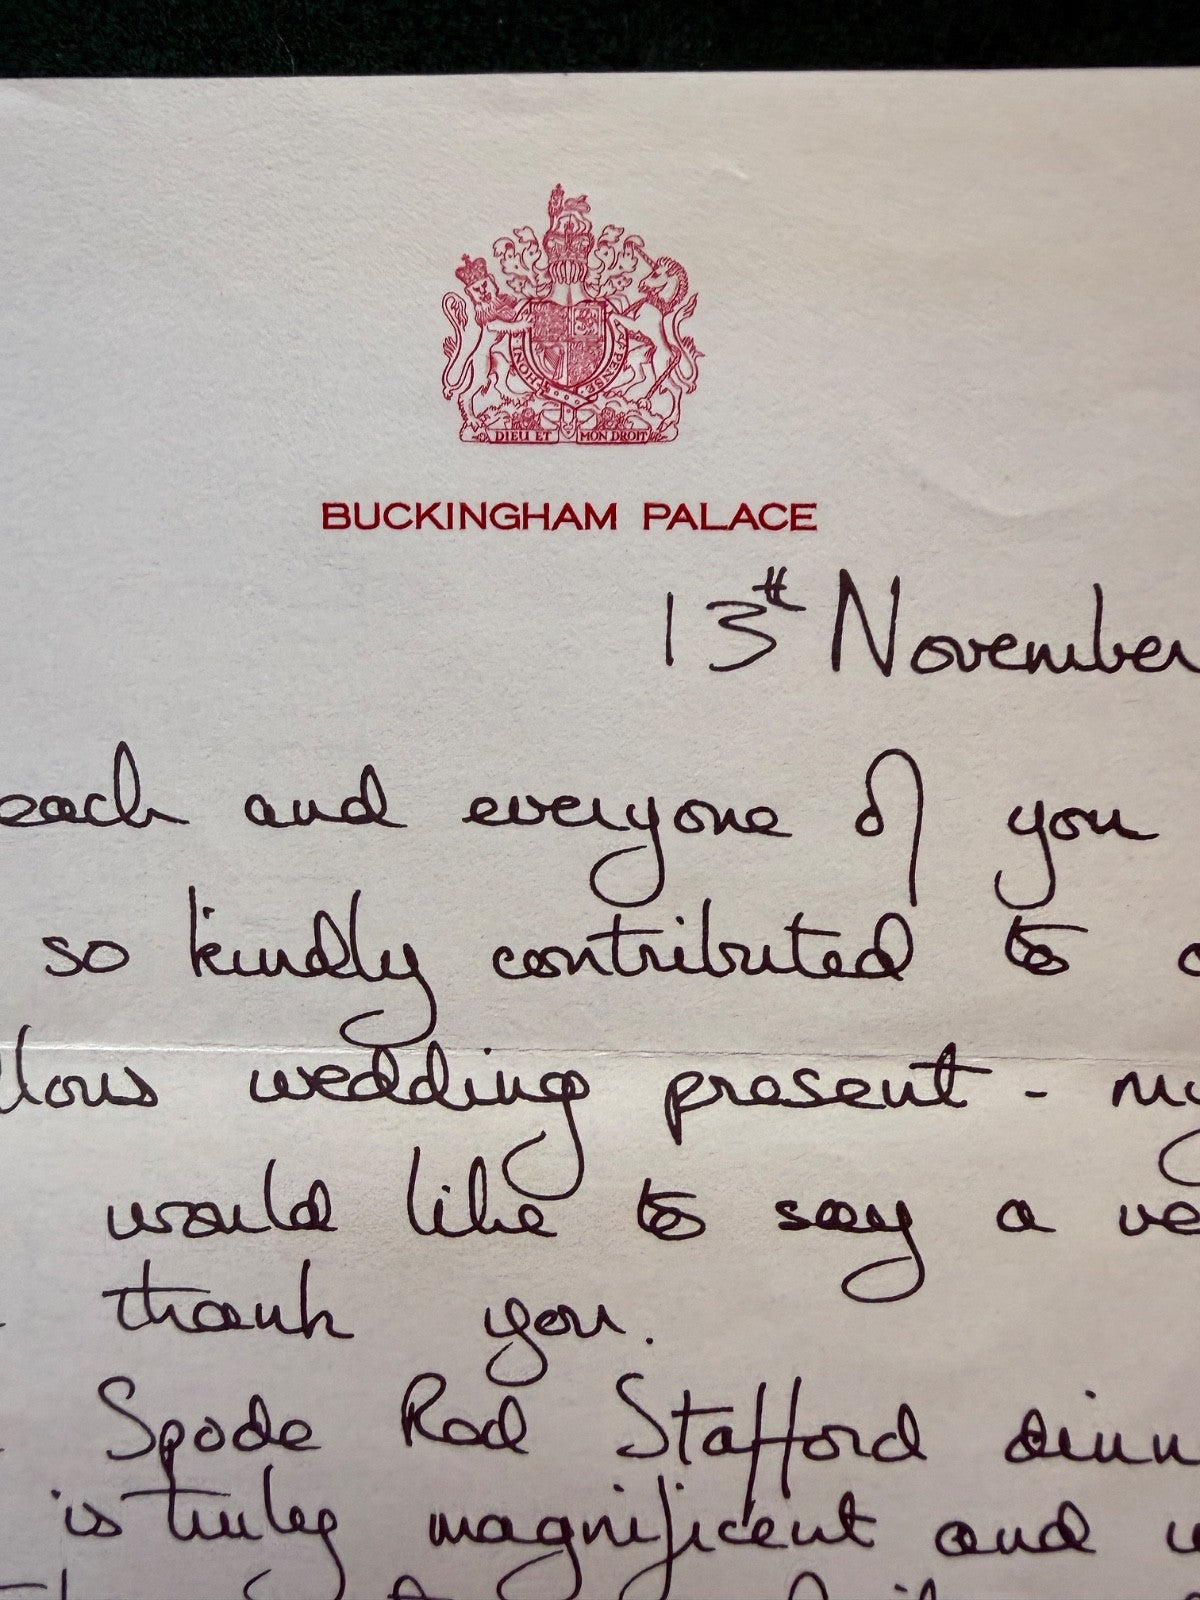 HONI
Y PENSE
DIEU ET MON DROIT
BUCKINGHAM PALACE
13th November
each and everyone of you
so kindly contributed to
wedding present - my
would like to say a
thank you.
Spode Red Stafford
is truly magnificent and